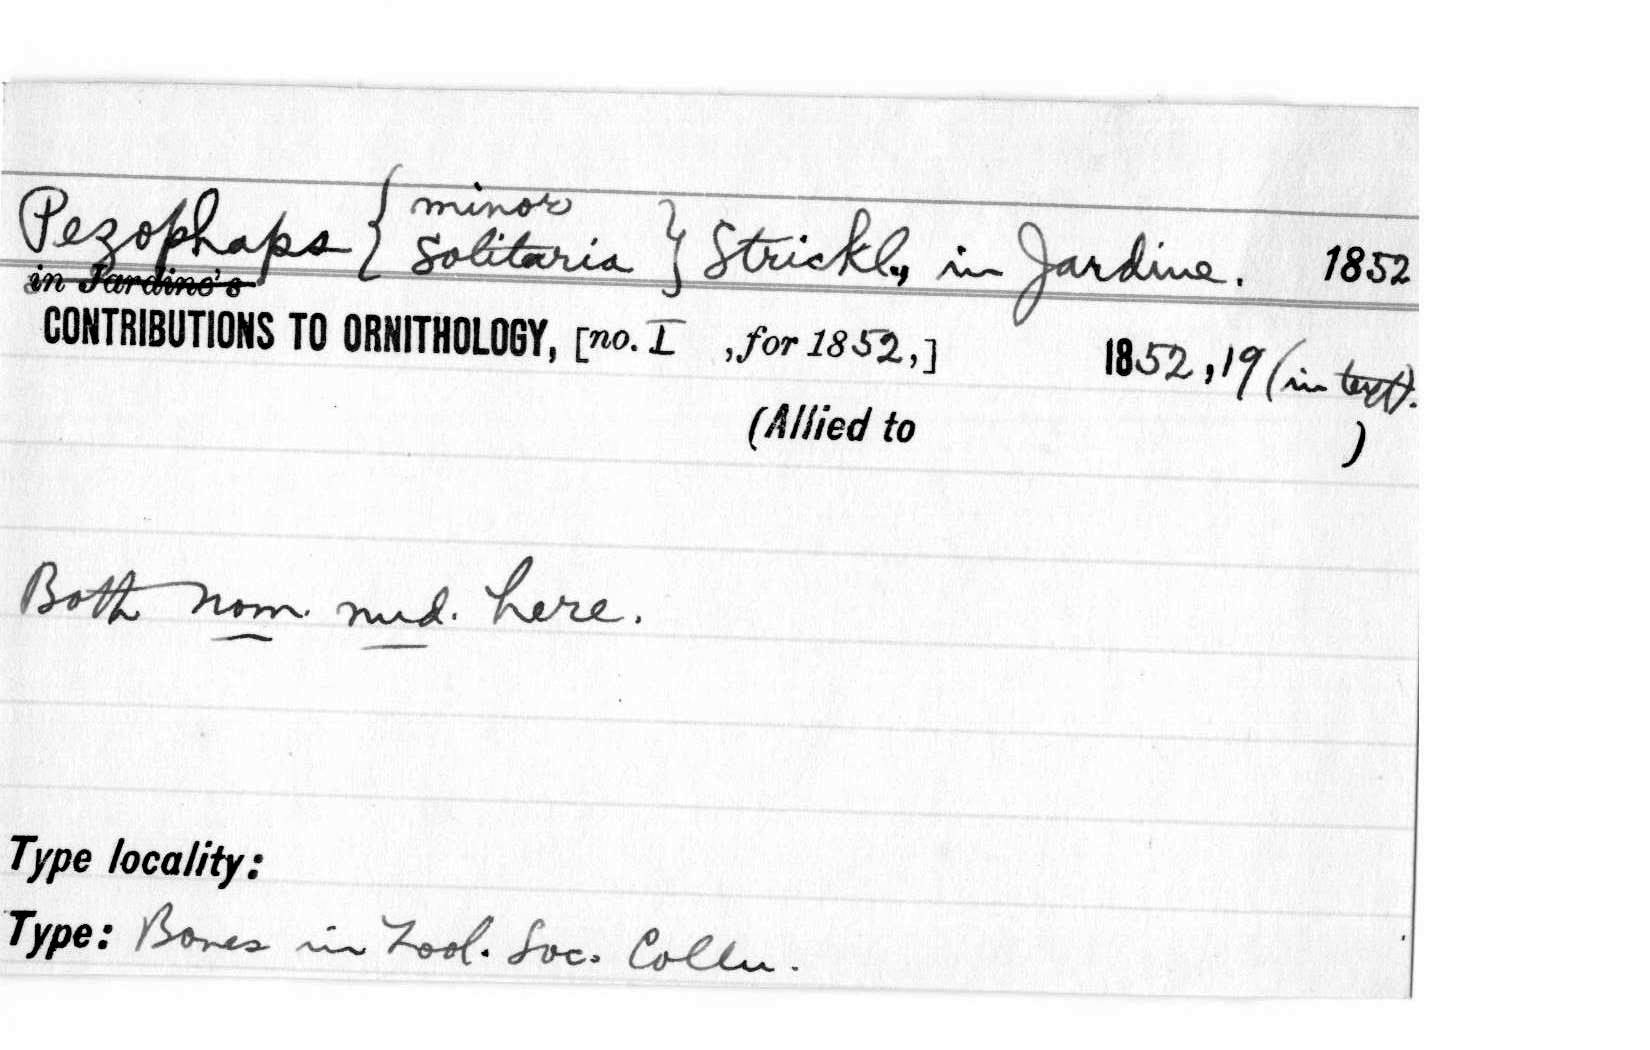 Pezophaps { minor
solitaria } Strickl., in Jardine. 1852
in Jardine's
CONTRIBUTIONS TO ORNITHOLOGY, [no. I , for 1852,] 1852, 19 (in text).
(Allied to )
Both nom. nud. here.
Type locality:
Type: Bones in Zool. Soc. Colln.